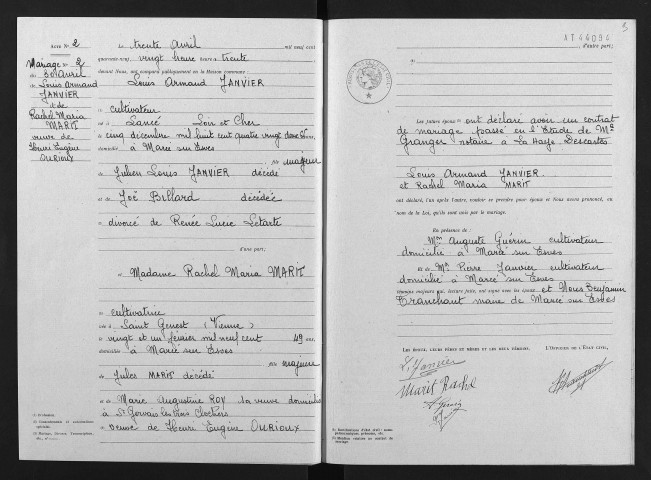 ACTE N° 2
Mariage N° 2
du 30 avril
de Louis Armand
JANVIER
et de
Rachel Maria
MARIT
veuve de
Henri Eugène
OURIOUX
Le trente avril mil neuf cent
quarante-neuf, vingt heure heures trente
devant Nous, ont comparu publiquement en la Maison commune :
Louis Armand JANVIER
cultivateur
né à Lancé Loir et Cher
le cinq décembre mil huit cent quatre vingt
domicilié à Marcé sur Esves
fils majeur
de Julien Louis JANVIER décédé
et de Zoé Billard décédée
divorcé de Renée Lucie Letarte
d'une part;
et Madame Rachel Maria MARIT
cultivatrice
née à Saint Genest (Vienne)
le vingt et un février mil neuf cent 49 ans,
domiciliée à Marcé sur Esves
fille majeure
de Jules MARIT décédé
et de Marie Augustine ROY sa veuve domiciliée
à St Gervais les trois Clochers
veuve de Henri Eugène OURIOUX
3
AT44094
d'autre part;
Les futurs époux ont déclaré avoir un contrat
de mariage passé en l'Etude de Me
Granger notaire à La Haye Descartes
Louis Armand JANVIER
et Rachel Maria MARIT
ont déclaré, l'un après l'autre, vouloir se prendre pour époux et Nous avons prononcé, au
nom de la Loi, qu'ils sont unis par le mariage.
En présence de :
Mm Auguste Guérin cultivateur
domicilié à Marcé sur Esves
et de Mr Pierre Janvier cultivateur
domicilié à Marcé sur Esves
témoins majeurs qui, lecture faite, ont signé avec les époux et Nous Benjamin
Tranchant maire de Marcé sur Esves
LES ÉPOUX, LEURS PÈRES ET MÈRES ET LES DEUX TÉMOINS, L'OFFICIER DE L'ÉTAT CIVIL,
L. Janvier
Marit Rachel